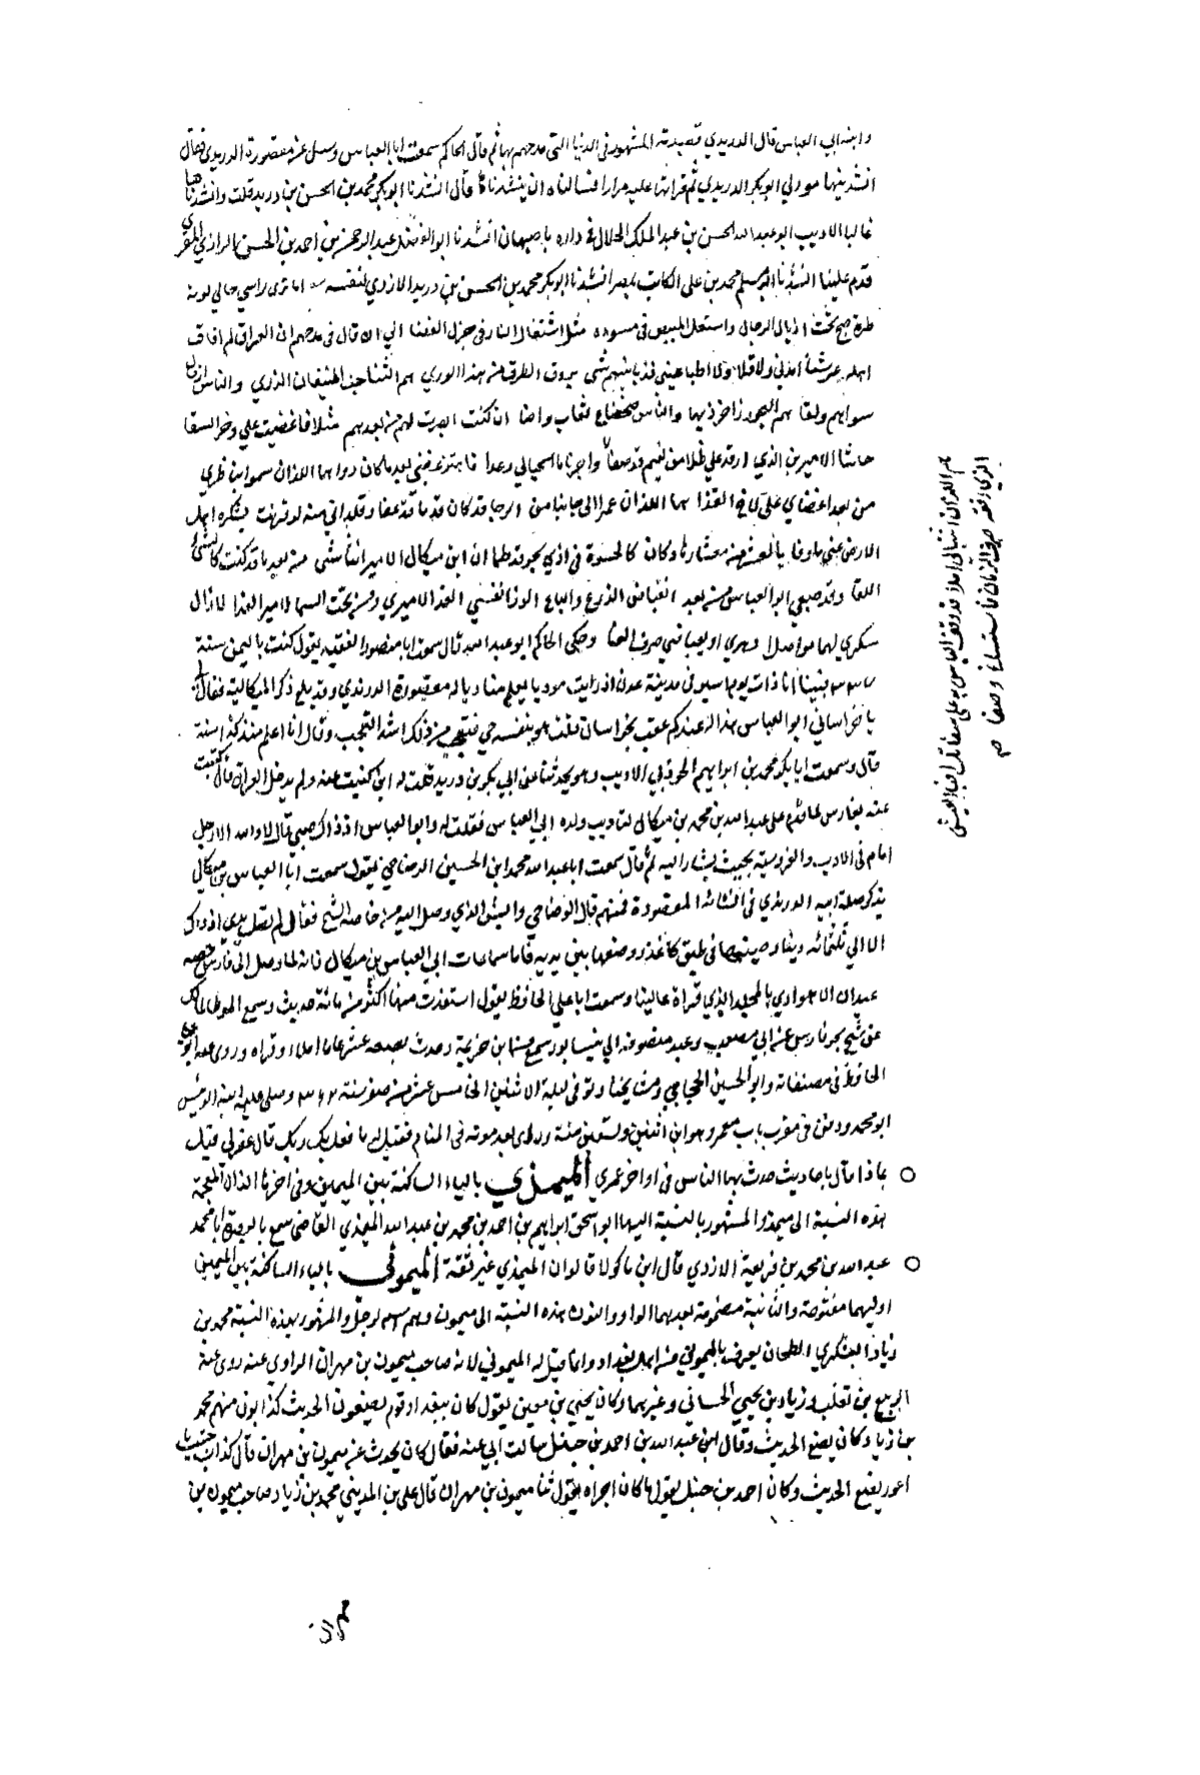 وابنه ابي العباس قال الدريدي قصيدته المشهور في الدنيا التي مدحهم بها ثم قال الحاكم سمعت ابا العباس وسئل عن مقصورة الدريدي فقال
انشدنيها مودبي ابو بكر الدريدي ثم قراتها عليه مرارا فسالناه ان ينشدنا قال انشدنا ابو بكر محمد بن الحسن بن دريد قلت وانشدناها
غالبا الاديب ابو عبد الله الحسن بن عبد الملك الخلال في داره باصبهان انشدنا ابو الفضل عبد الرحمن بن احمد بن الحسن الرازي المقري
قدم علينا انشدنا ابو مسلم محمد بن علي الكاتب بمصر انشدنا ابو بكر محمد بن الحسن بن دريد الازدي لنفسه اما تري راسي حاكي لونه
طرة صبح تحت اذيال الدجا واشتعل المبيض في مسوده مثل اشتعال النار في جزل الغضا الي ان قال في مدحهم ان العراق لم افارق
اهله عن شنأ اصدني ولا قلا ولا اطبا عيني مذ فارقتهم شي يروق الطرف من هذا الوري هم الشناخيب المنيفات الذري والناس
سواهم هم البحور زاخر اذيها والناس ضحضاح ثغاب واضا ان كنت ابصرت لهم من بعدهم مثلا فاغضيت علي وخز السفا
حاشا الاميرين الذي اوفدا علي ظلا من نعيم قد ضفا واجريا ماء الحيا لي رغدا فاهتز غصني بعد ما كان ذوا هما اللذان سموا بناظري
من بعد اغضاي علي القذا هما اللذان عمرا لي جانبا من الرجا قد كان قدما قد عفا وقلداني منه لو قرنت بشكر اهل
الارض عني ما وفا بالعشر من معشاره وكان كالحسوة في اذي بحر قد طما ان ابن ميكال الامير انتاشني من بعد ما قد كنت كالشي
اللقا ومد ضبعي ابو العباس من بعد انقباض الذرع والباع الوزا نفسي الفدا لاميري ومن تحت السما لاميري الفدا لا زال
شكري لهما مواصلا دهري او يعتاقني صرف الفنا وحكي الحاكم ابو عبد الله قال سمعت ابا منصور الفقيه يقول كنت باليمن سنة
فبينا انا ذات يوم اسير في مدينة عدن اذ رايت مودبا يعلم مقصورة الدريدي وقد بلغ ذكر الميكالية فقال لي
يا خراساني ابو العباس هذا له عندكم عقب بخراسان فقلت هو بنفسه حي فتعجب من ذلك اشد التعجب وقال انا اعلم منذ كذا سنة
قال وسمعت ابا بكر محمد بن ابراهيم الجوري الاديب وهو يحدثنا عن ابي بكر بن دريد فقلت له اين كتبت عنه ولم يدخل العراق قال كتبت
عنه بفارس لما قدم علي عبد الله بن محمد بن ميكال لتاديب ولده ابي العباس فقلت له وابو العباس اذ ذاك صبي قال لا والله الا رجل
امام في الادب والفروسية بحيث يشار اليه ثم قال سمعت ابا عبد الله محمد ابن الحسين الوضاحي يقول سمعت ابا العباس بن ميكال
يذكر صلة ابيه الدريدي في انشائه المقصورة فمنهم قال الوضاحي وايش الذي وصل اليه من خاصة الشيخ فقال لم تصل يدي اذ ذاك
الا الي ثلثمائة دينار صببتها في طبق كاغذ ووضعتها بين يديه فاما سماعات ابي العباس بن ميكال فانه لما وصل الي فارس خصه
عبدان الاهوازي بالمجلد الذي قراة عالينا وسمعت ابا علي الحافظ يقول استفدت منها اكثر من مائة حديث وسمع الموطا لمالك
عن شيخ بجور فارس عن ابي مصعب وعبد منصرفه الي نيسابور سمع من ابن خزيمة وحدث بضعة عشر عاما املاء وقراه وروي عنه ابو علي
الحافظ في مصنفاته وابو الحسين الحجاجي ومشايخنا وتوفي ليلة الاثنين الخامس عشر من صفر سنة ٣٦٢ وصلي عليه ابنه الرئيس
ابو محمد ودفن في مقبرة باب معمر وهو ابن اثنتين وتسعين سنة وراي بعد موته في المنام فقيل له ما فعل بك ربك قال غفر لي قيل
بماذا قال باحاديث حدث بها الناس في اواخر عمري الميمذي بالياء الساكنة بين الميمين وفي اخرها الذال المعجمة
هذه النسبة الي ميمذ والمشهور بالنسبة اليها ابو اسحق ابراهيم بن احمد بن محمد بن عبد الله الميمذي القاضي سمع بالموصل ابا محمد
عبد الله بن محمد بن الازدي قال ابن ماكولا قالوا ان الميمذي غير ثقة الميموني بالياء الساكنة بين الميمين
اوليهما مفتوحة والثانية مضمومة بعدهما الواو والنون هذه النسبة الي ميمون وهم اسم لرجل والمشهور بهذه النسبة محمد بن
زياد اليشكري الطحان يعرف بالميموني من اهل بغداد وانما قيل له الميموني لانه صاحب ميمون بن مهران الراوي عنه روي عنه
الربيع بن تغلب وزياد بن يحيي الحساني وغيرهما وكان يحيي بن معين يقول كان ببغداد قوم يضعون الحديث كذابون منهم محمد
بن زياد وكان يضع الحديث وقال ابن عبد الله بن احمد بن حنبل سالت ابي عنه فقال كان يحدث عن ميمون بن مهران قال كذاب خبيث
اعور يضع الحديث وكان احمد بن حنبل يقول ما كان اجراه يقول ثنا ميمون بن مهران قال علي بن المديني محمد بن زياد صاحب ميمون بن
مهران